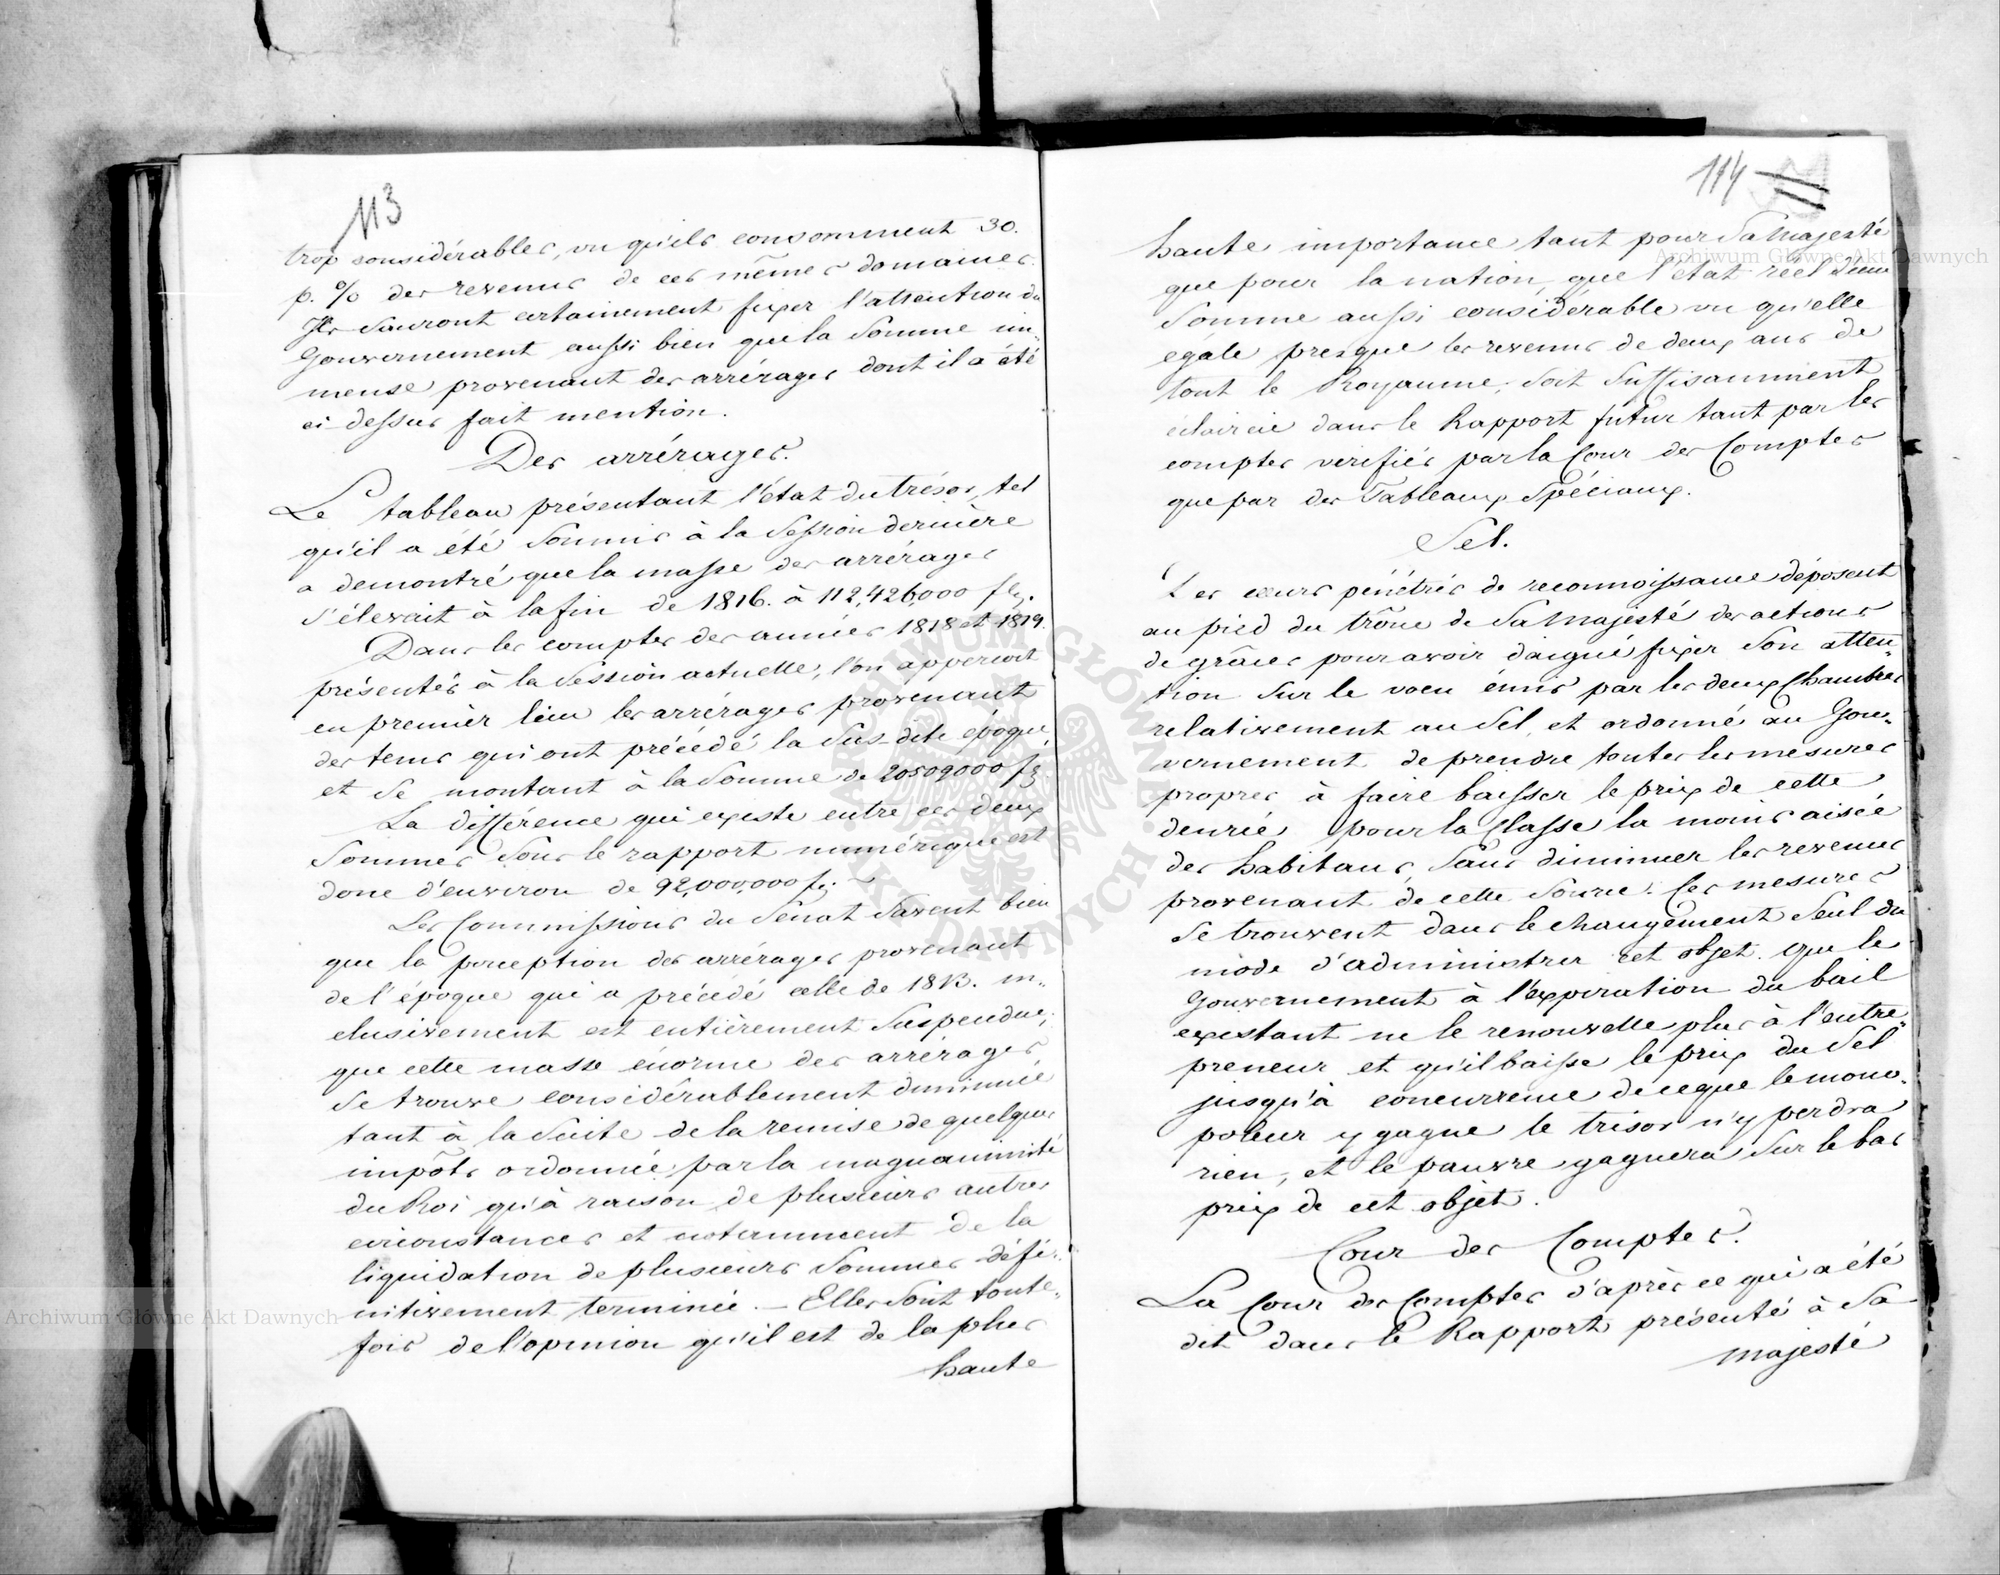 113
trop considérables, vu qu'ils consomment 30.
p. % des revenus de ces mêmes domaines.
Ils sauront certainement fixer l'attention du
Gouvernement aussi bien que la somme im-
mense provenant des arrérages dont il a été
ci-dessus fait mention.
Des arrérages.
Le tableau présentant l'état du trésor, tel
qu'il a été soumis à la Session dernière
a demontré que la masse des arrérages
s'élevait à la fin de 1816. à 112,426,000 fl.
Dans les comptes des années 1818 et 1819.
présentés à la Session actuelle, l'on apperçoit
en premier lieu les arrérages provenant
des tems qui ont précédé la sus-dite époque,
et se montant à la somme de 20509000 fl.
La différence qui existe entre ces deux
sommes sous le rapport numérique est
donc d'environ de 92,000,000 fl.
Les Commissions du Sénat savent bien
que la perception des arrérages provenant
de l'époque qui a précédé celle de 1813. in-
clusivement est entièrement suspendue;
que cette masse énorme des arrérages,
se trouve considérablement diminuée
tant à la suite de la remise de quelques
impôts ordonnée par la magnanimité
du Roi qu'à raison de plusieurs autres
circonstances et notamment de la
liquidation de plusieurs sommes défi-
nitivement terminée. — Elles sont toute-
fois de l'opinion qu'il est de la plus
haute
114
haute importance tant pour Sa Majesté
que pour la nation, que l'état réel d'une
somme aussi considérable vu qu'elle
égale presque les revenus de deux ans de
tout le Royaume, soit suffisamment
éclaircie dans le Rapport futur tant par les
comptes vérifiés par la Cour des Comptes
que par des Tableaux Spéciaux.
Sel.
Les cœurs pénétrés de reconnoissance déposent
au pied du trône de Sa Majesté des actions
de grâces pour avoir daigné fixer Son atten-
tion sur le voeu émis par les deux Chambres
relativement au Sel, et ordonné au Gou-
vernement de prendre toutes les mesures
propres à faire baisser le prix de cette
denrée pour la classe la moins aisée
des habitans, sans diminuer les revenus
provenant de cette source. Ces mesures
se trouvent dans le changement seul du
mode d'administrer cet objet. Que le
Gouvernement à l'expiration du bail
existant ne le renouvelle plus à l'entre-
preneur et qu'il baisse le prix du Sel
jusqu'à concurrence de ce que le mono-
poleur y gagne le trésor n'y perdra
rien, et le pauvre gagnera sur le bas
prix de cet objet.
Cour des Comptes.
La Cour des Comptes d'après ce qui a été
dit dans le Rapport présenté à Sa
Majesté
Archiwum Główne Akt Dawnych
Archiwum Główne Akt Dawnych
ARCHIWUM GŁÓWNE AKT DAWNYCH